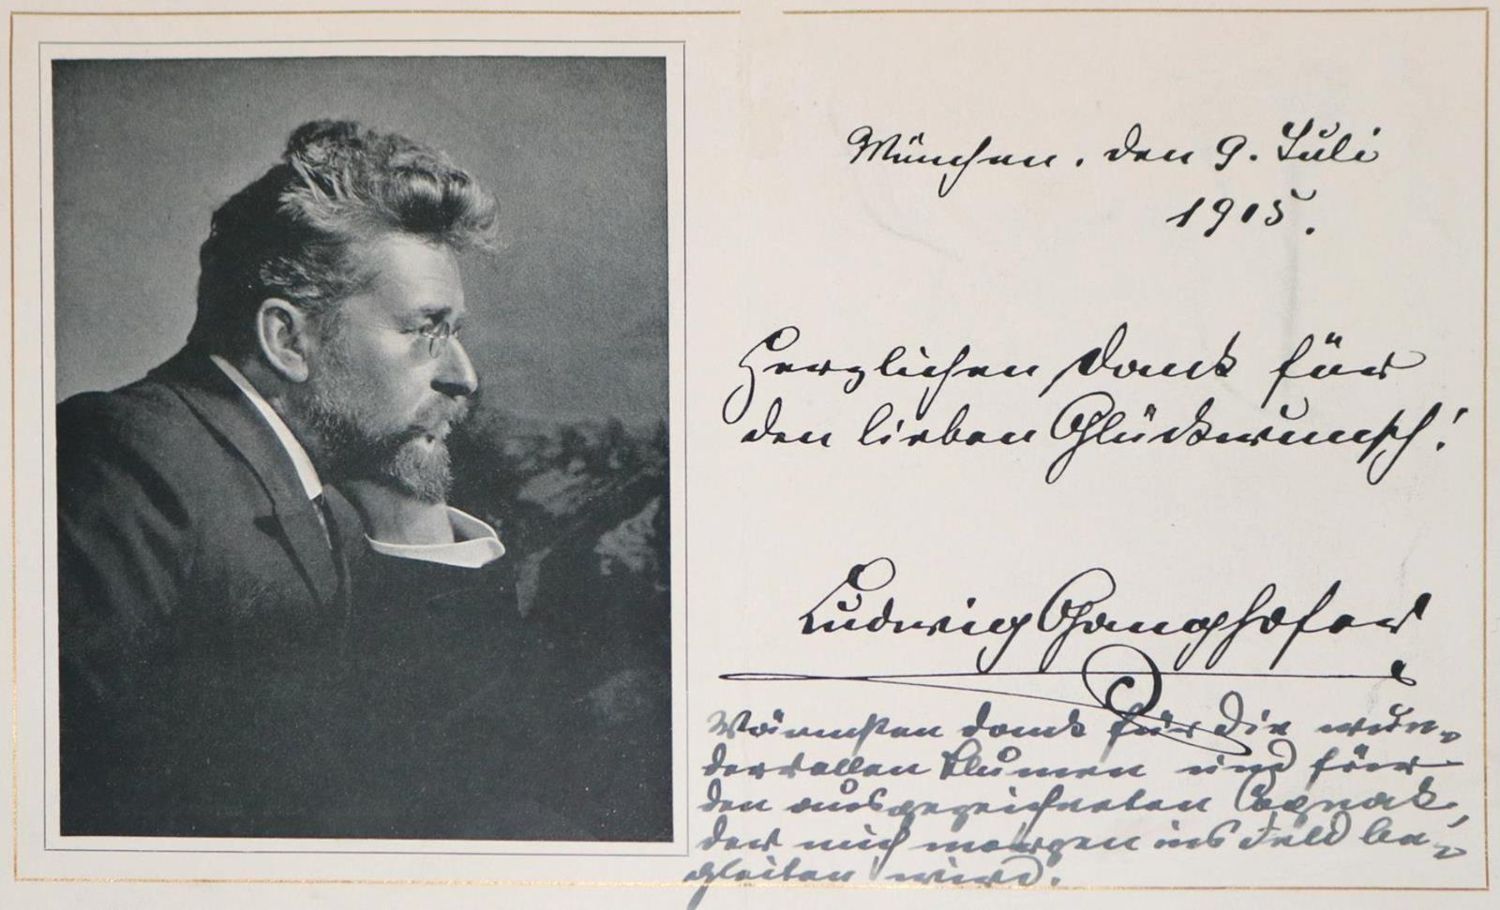 München, den 9. Juli
1915.
Herzlichen Dank für
den lieben Glückwunsch!
Ludwig Ganghofer
Wärmsten Dank für die wun-
dervollen Blumen und für
den ausgezeichneten Cognak,
der mich morgen ins Feld be-
gleiten wird.